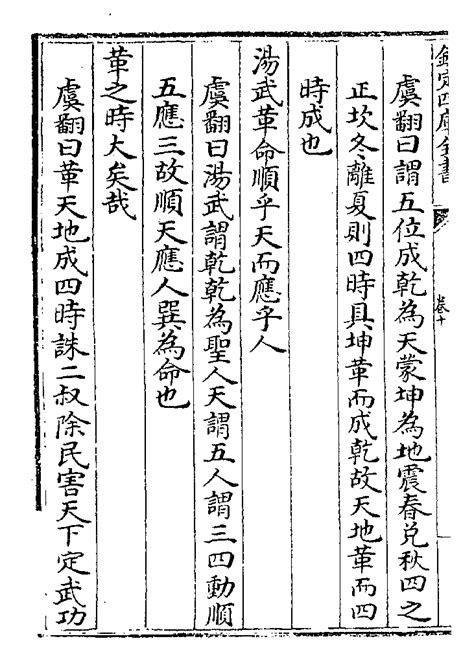 欽定四庫全書
卷十
虞翻曰謂五位成乾為天蒙坤為地震春兌秋四之
正坎冬離夏則四時具坤革而成乾故天地革而四
時成也
湯武革命順乎天而應乎人
虞翻曰湯武謂乾乾為聖人天謂五人謂三四動順
五應三故順天應人巽為命也
革之時大矣哉
虞翻曰革天地成四時誅二叔除民害天下定武功